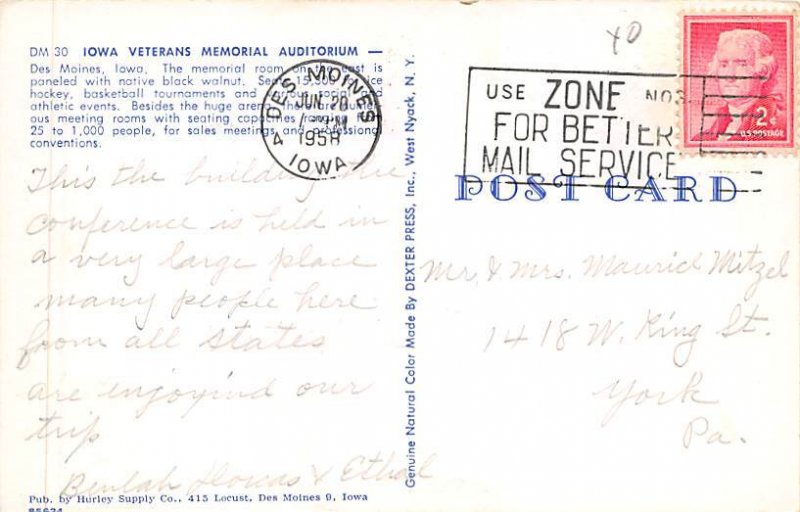 DM 30 IOWA VETERANS MEMORIAL AUDITORIUM —
Des Moines, Iowa. The memorial room on the east is
paneled with native black walnut. Seats 15,300 for ice
hockey, basketball tournaments and various social and
athletic events. Besides the huge arena there are numer-
ous meeting rooms with seating capacities ranging from
25 to 1,000 people, for sales meetings and professional
conventions.
This the building the
conference is held in
a very large place
many people here
from all states
are enjoyind our
trip
Beulah Dorcas & Ethel
Pub. by Hurley Supply Co., 415 Locust, Des Moines 9, Iowa
85624
Genuine Natural Color Made By DEXTER PRESS, Inc., West Nyack, N. Y.
DES MOINES
JUN 20
PM
1958
4
IOWA
USE ZONE NOS.
FOR BETTER
MAIL SERVICE
2¢
U.S. POSTAGE
POST CARD
Mr. & Mrs. Maurice Mitzel
1418 W. King St.
York
Pa.